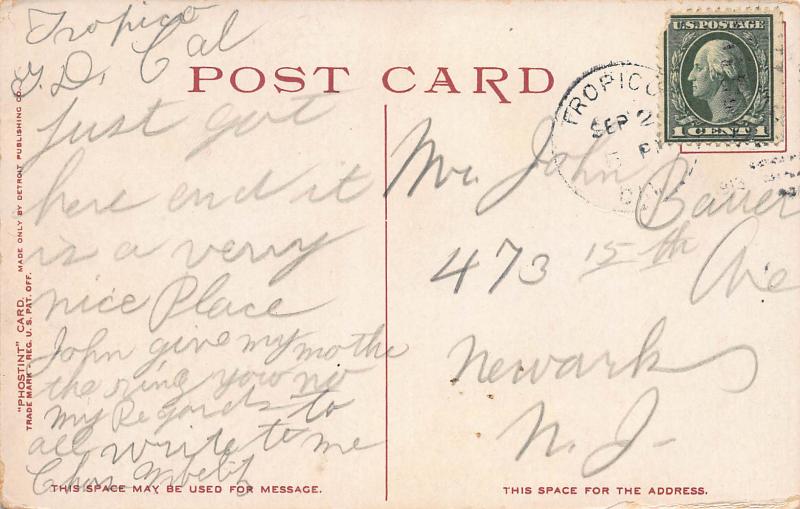 Tropico
G. D. Cal
POST CARD
U.S. POSTAGE
1 CENT 1
TROPICO
SEP 2
Just got
here end it
is a verry
nice Place
John give my mothe
the ring you no
my Regards to
all write to me
Chas
Mr. John
Bauer
473 15th Ave
Newark
N. J.
"PHOSTINT" CARD. MADE ONLY BY DETROIT PUBLISHING CO.
TRADE MARK-REG. U.S. PAT. OFF.
THIS SPACE MAY BE USED FOR MESSAGE.
THIS SPACE FOR THE ADDRESS.